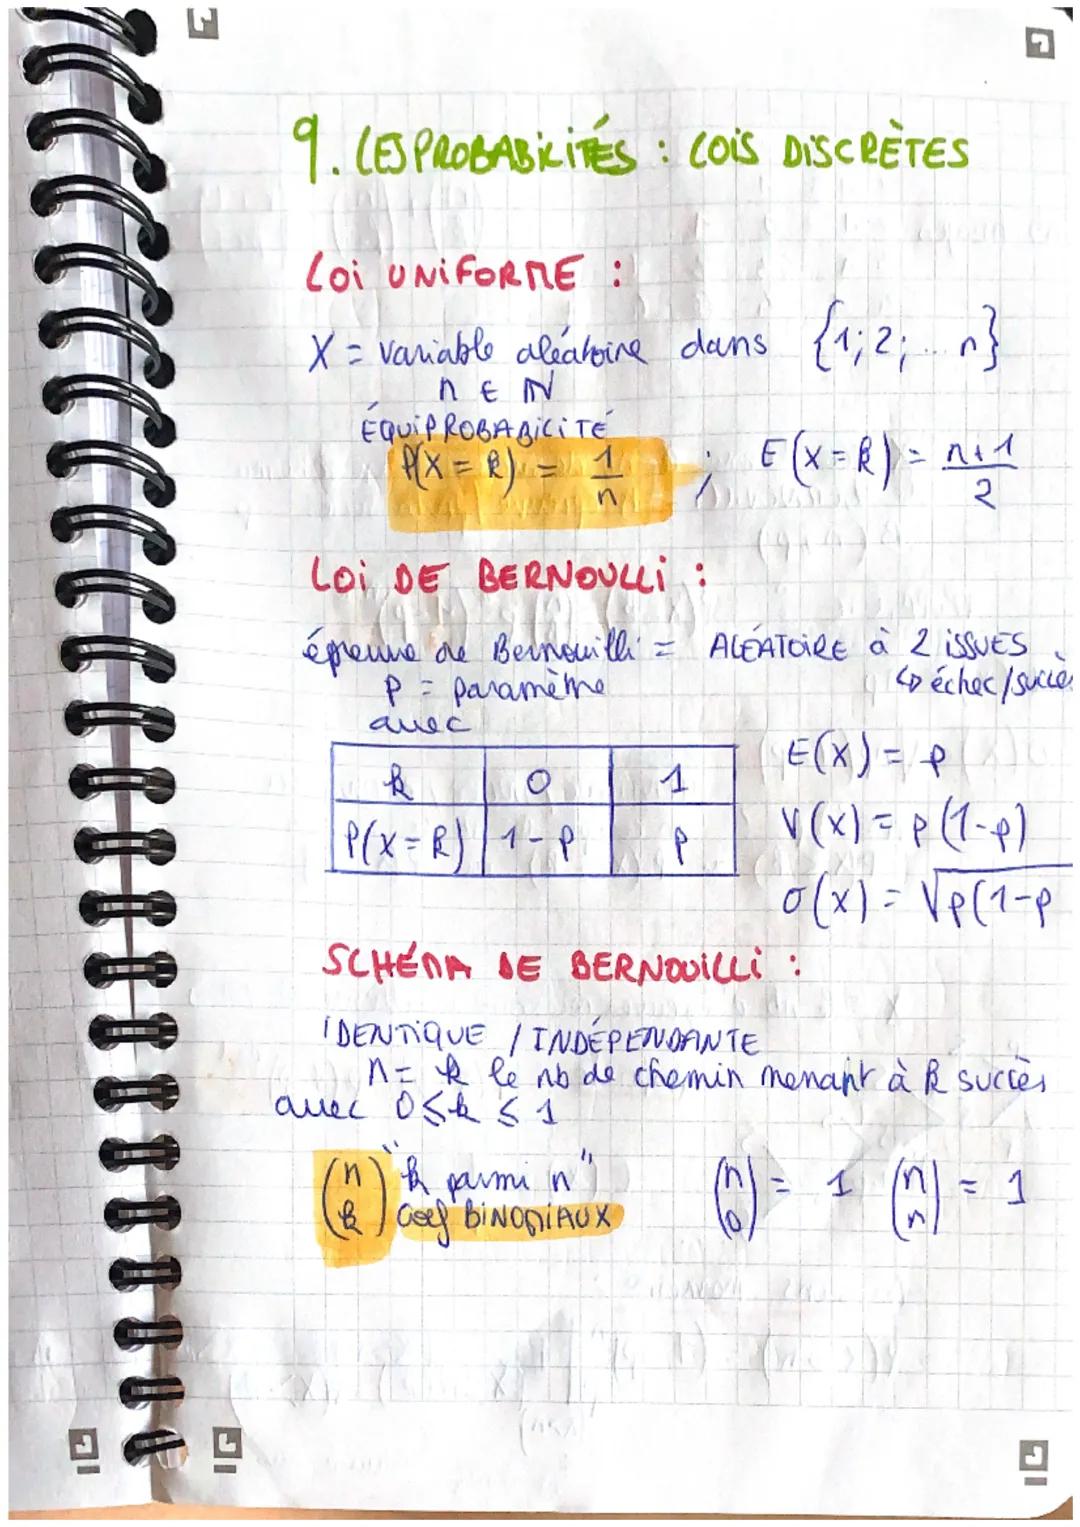 9. LES PROBABILITÉS : LOIS DISCRÈTES
LOI UNIFORME :
X = variable aléatoire dans {1; 2; ... n}
n ∈ ℕ
ÉQUIPROBABILITÉ
P(X = k) = 1/n ; E(X = k) = n+1/2
LOI DE BERNOULLI :
épreuve de Bernouilli = ALÉATOIRE à 2 ISSUES
p = paramètre ↳ échec/succès
avec
k 0 1
P(X = k) 1-p p
E(X) = p
V(X) = p(1-p)
σ(X) = √p(1-p
SCHÉMA DE BERNOUILLI :
IDENTIQUE / INDÉPENDANTE
n = k le nb de chemin menant à k succès
avec 0 ≤ k ≤ 1
(n k) "k parmi n" (n 0) = 1 (n n) = 1
coef BINOMIAUX